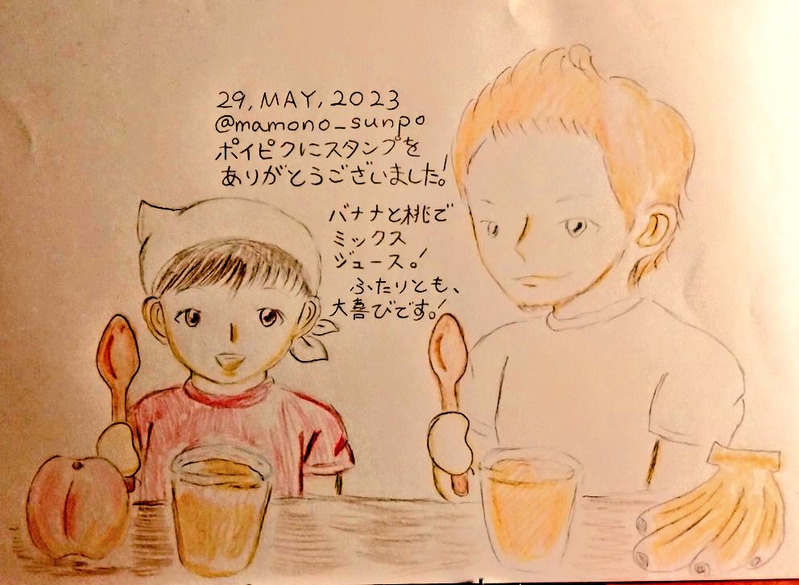 29, MAY, 2023
@mamono_sunpo
ポイピクにスタンプを
ありがとうございました!
バナナと桃で
ミックス
ジュース!
ふたりとも、
大喜びです!